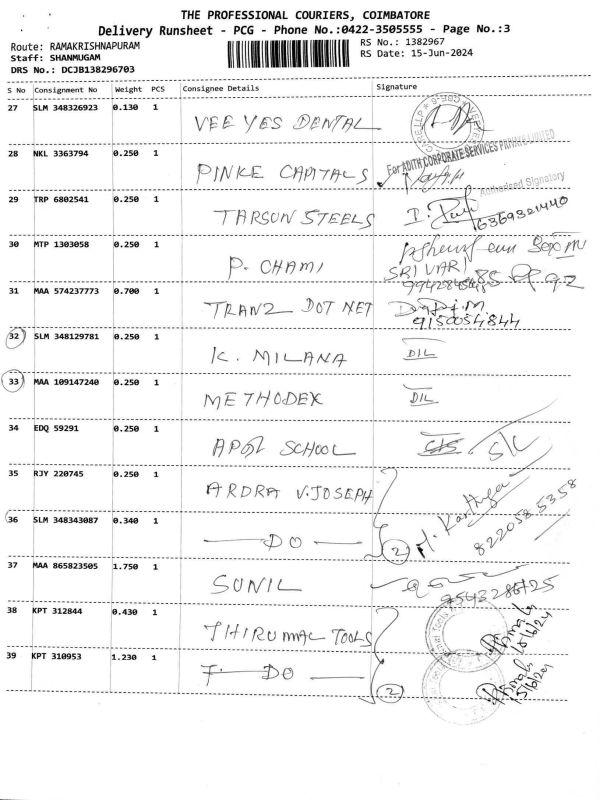 THE PROFESSIONAL COURIERS, COIMBATORE
Delivery Runsheet - PCG - Phone No.:0422-3505555 - Page No.:3
Route: RAMAKRISHNAPURAM
RS No.: 1382967
Staff: SHANMUGAM
RS Date: 15-Jun-2024
DRS No.: DCJB138296703
S No Consignment No Weight PCS Consignee Details Signature
27 SLM 348326923 0.130 1 VEE YES DENTAL
28 NKL 3363794 0.250 1 PINKE CAPITALS
For ADITH CORPORATE SERVICES PRIVATE LIMITED
Authorised Signatory
29 TRP 6802541 0.250 1 TARSUN STEELS
6369321440
30 MTP 1303058 0.250 1 P. CHAMI
SRI VARI
31 MAA 574237773 0.700 1 TRANZ DOT NET
9150054844
32 SLM 348129781 0.250 1 K. MILANA DIL
33 MAA 109147240 0.250 1 METHODEX DIL
34 EDQ 59291 0.250 1 APPL SCHOOL S/C
35 RJY 220745 0.250 1 ARDRA V.JOSEPH
M. Karthiga
8220585358
36 SLM 348343087 0.340 1 DO 2
37 MAA 865823505 1.750 1 SUNIL
9543286125
38 KPT 312844 0.430 1 THIRUMAL TOOLS
15/6/24
39 KPT 310953 1.230 1 DO 2
15/6/24